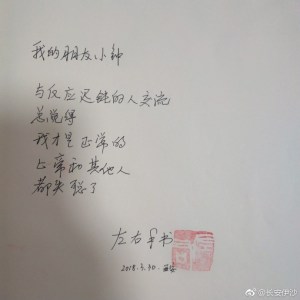 我的朋友小钟
与反应迟钝的人交流
总觉得
我才是正常的
上帝和其他人
都失聪了
左右手书
2018.5.30.西安
@长安伊沙